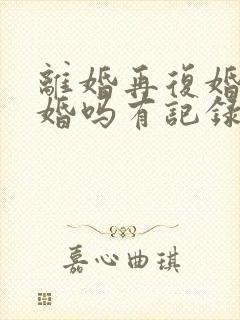 離婚再復婚
婚吗有記録
嘉心曲琪